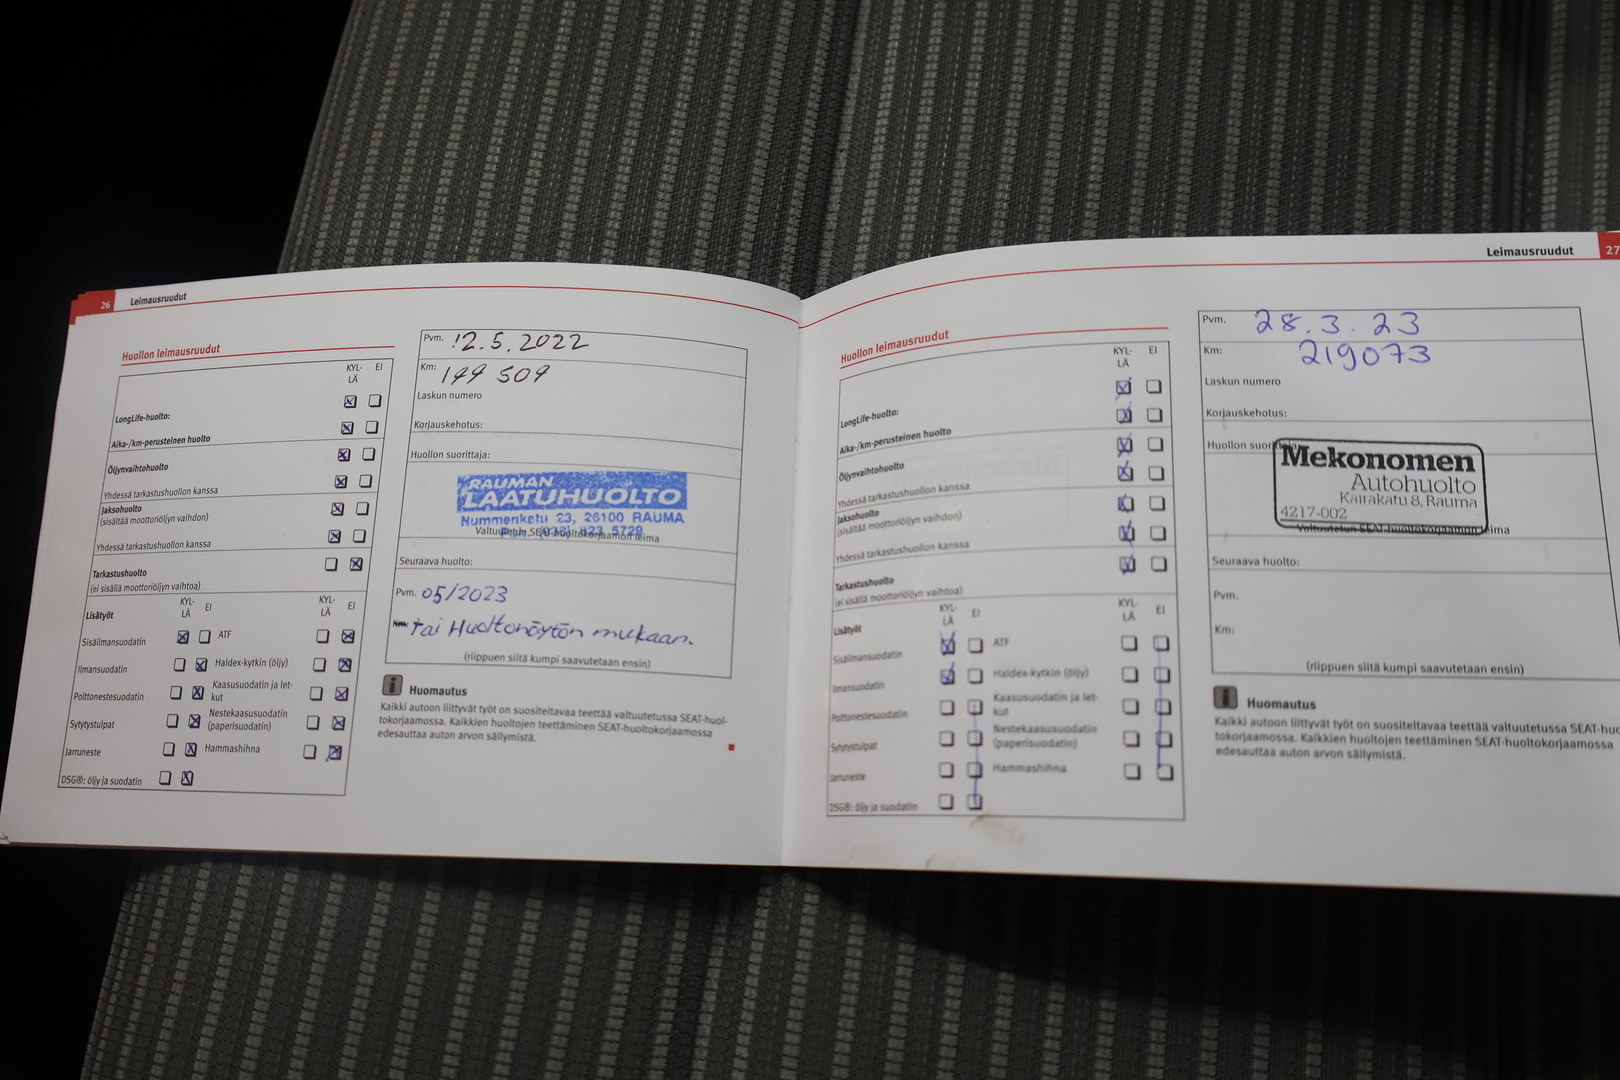 26 Leimausruudut
Huollon leimausruudut
KYL-LÄ EI
LongLife-huolto:
Aika-/km-perusteinen huolto
Öljynvaihtohuolto
Yhdessä tarkastushuollon kanssa
Jaksohuolto
(sisältää moottoriöljyn vaihdon)
Yhdessä tarkastushuollon kanssa
Tarkastushuolto
(ei sisällä moottoriöljyn vaihtoa)
Lisätyöt KYL-LÄ EI KYL-LÄ EI
Sisäilmansuodatin ATF
Ilmansuodatin Haldex-kytkin (öljy)
Polttonestesuodatin Kaasusuodatin ja let-
kut
Sytytystulpat Nestekaasusuodatin
(paperisuodatin)
Jarruneste Hammashihna
DSG®: öljy ja suodatin
Pvm. 12.5.2022
Km: 199 509
Laskun numero
Korjauskehotus:
Huollon suorittaja:
RAUMAN
LAATUHUOLTO
Nummenkatu 23, 26100 RAUMA
Valtuutetun SEAT-huoltokorjaamon leima
Seuraava huolto:
Pvm. 05/2023
Km: tai Huoltonäytön mukaan.
(riippuen siitä kumpi saavutetaan ensin)
i Huomautus
Kaikki autoon liittyvät työt on suositeltavaa teettää valtuutetussa SEAT-huol-
tokorjaamossa. Kaikkien huoltojen teettäminen SEAT-huoltokorjaamossa
edesauttaa auton arvon säilymistä.
Leimausruudut 27
Huollon leimausruudut
KYL-LÄ EI
LongLife-huolto:
Aika-/km-perusteinen huolto
Öljynvaihtohuolto
Yhdessä tarkastushuollon kanssa
Jaksohuolto
(sisältää moottoriöljyn vaihdon)
Yhdessä tarkastushuollon kanssa
Tarkastushuolto
(ei sisällä moottoriöljyn vaihtoa)
Lisätyöt KYL-LÄ EI KYL-LÄ EI
Sisäilmansuodatin ATF
Ilmansuodatin Haldex-kytkin (öljy)
Polttonestesuodatin Kaasusuodatin ja let-
kut
Sytytystulpat Nestekaasusuodatin
(paperisuodatin)
Jarruneste Hammashihna
DSG®: öljy ja suodatin
Pvm. 28.3.23
Km: 219073
Laskun numero
Korjauskehotus:
Huollon suorittaja:
Mekonomen
Autohuolto
Kairakatu 8, Rauma
4217-002
Valtuutetun SEAT-huoltokorjaamon leima
Seuraava huolto:
Pvm.
Km:
(riippuen siitä kumpi saavutetaan ensin)
i Huomautus
Kaikki autoon liittyvät työt on suositeltavaa teettää valtuutetussa SEAT-huo
tokorjaamossa. Kaikkien huoltojen teettäminen SEAT-huoltokorjaamossa
edesauttaa auton arvon säilymistä.